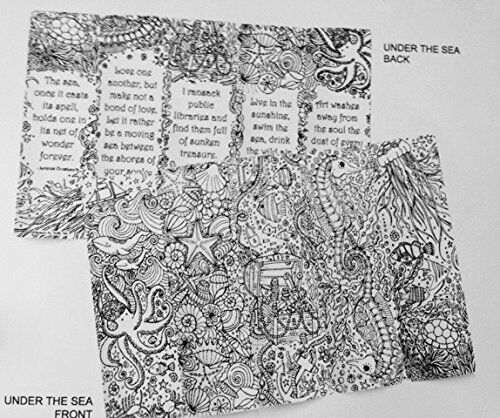 UNDER THE SEA
BACK
The sea,
once it casts
its spell,
holds one in
its net of
wonder
forever.
Love one
another, but
make not a
bond of love.
Let it rather
be a moving
sea between
the shores of
your souls.
I ransack
public
libraries and
find them full
of sunken
treasure.
Live in the
sunshine,
swim the
sea, drink
the wild
Art washes
away from
the soul the
dust of every
UNDER THE SEA
FRONT